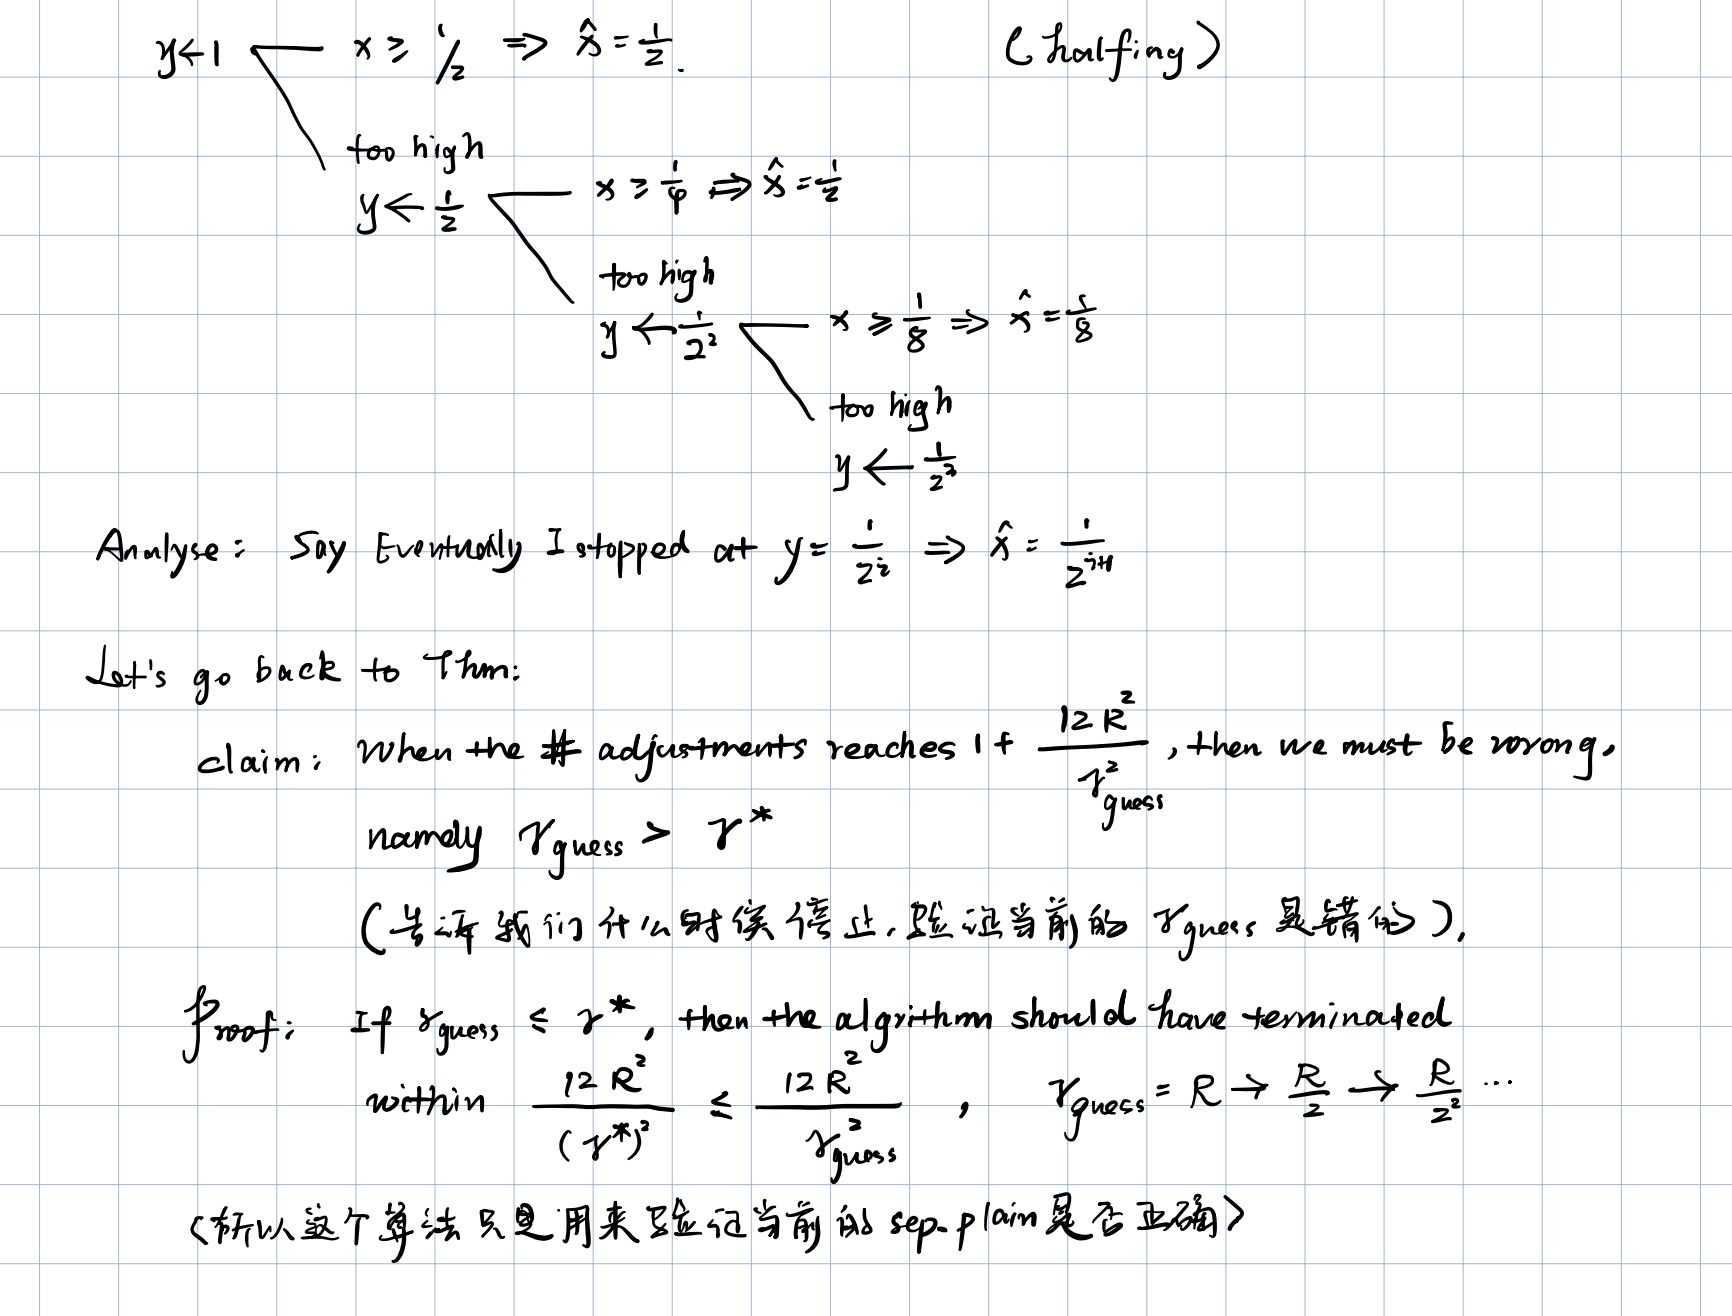 y ← 1   x ≥ 1/2 ⇒ x̂ = 1/2.   (halfing)
too high
y ← 1/2   x ≥ 1/4 ⇒ x̂ = 1/2
too high
y ← 1/2²   x ≥ 1/8 ⇒ x̂ = 1/8
too high
y ← 1/2³
Analyse: Say Eventually I stopped at y = 1/2^i ⇒ x̂ = 1/2^(i+1)
Let's go back to Thm:
claim: When the # adjustments reaches 1 + 12R²/γ²guess, then we must be wrong,
namely γguess > γ*
(告诉我们什么时候停止, 验证当前的 γguess 是错的).
Proof: If γguess ≤ γ*, then the algrithm should have terminated
within 12R²/(γ*)² ≤ 12R²/γ²guess , γguess = R → R/2 → R/2² ...
(所以这个算法只是用来验证当前的 sep-plain 是否正确)